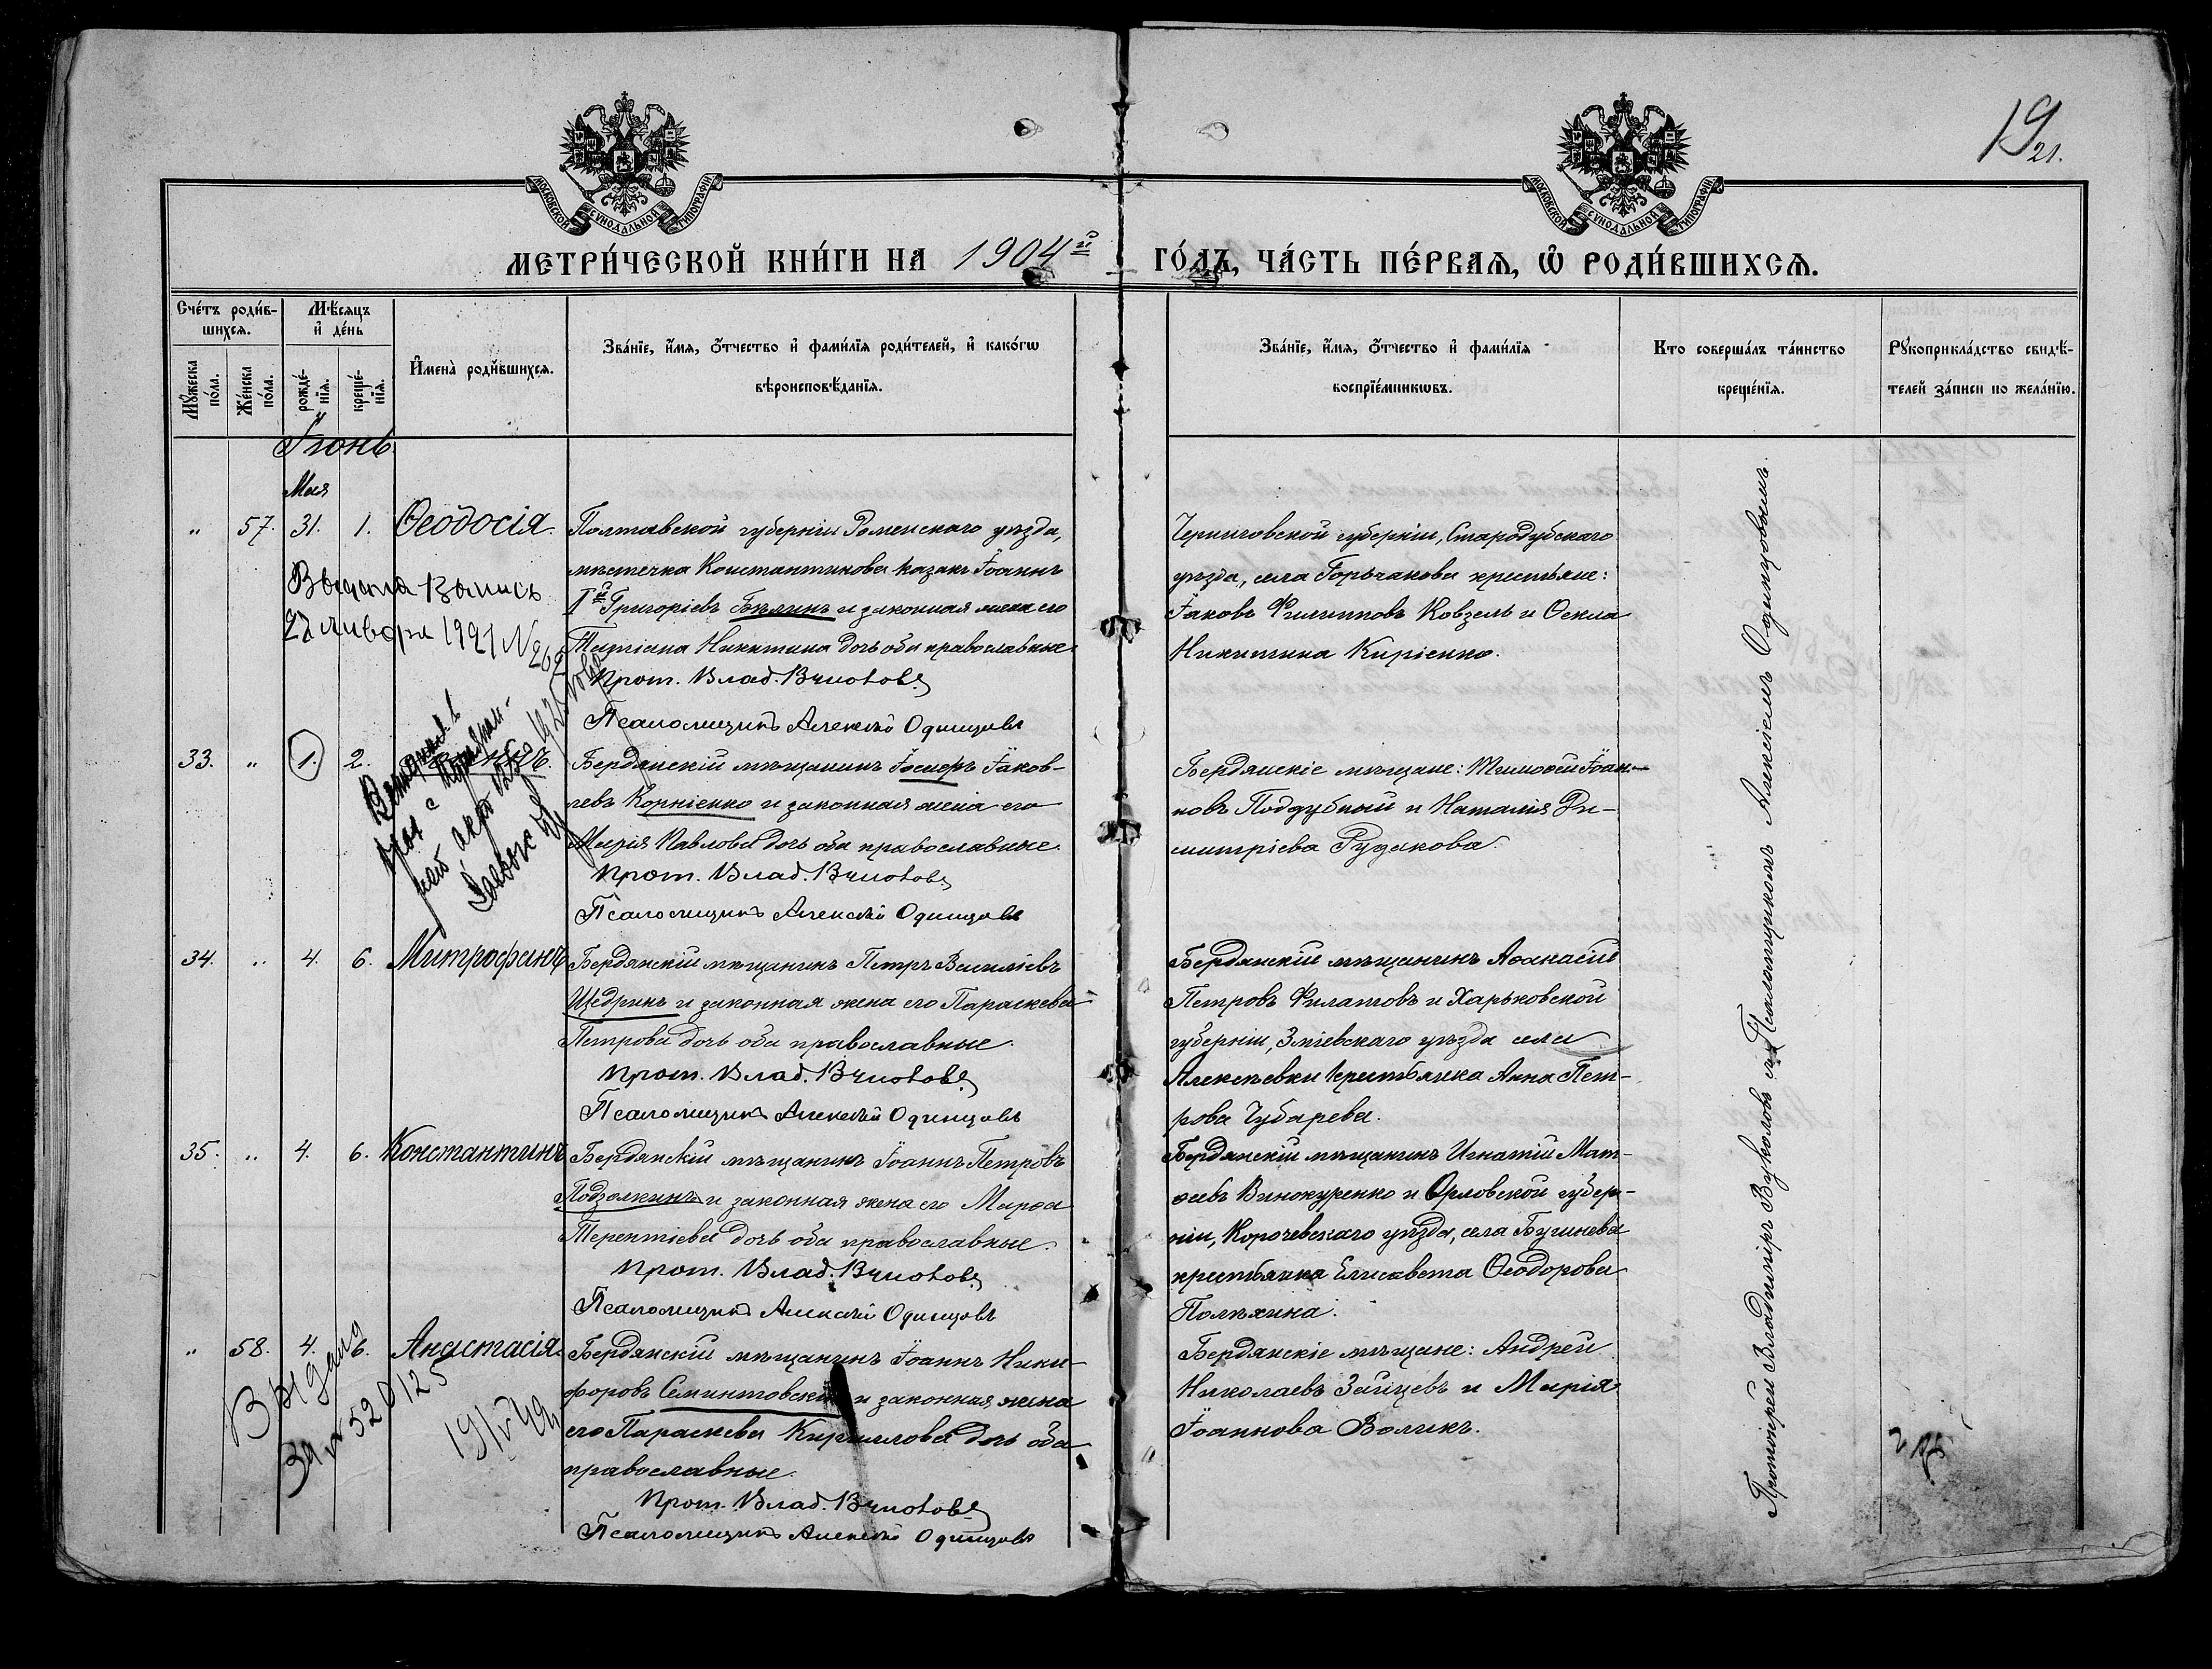 19
21.
МОСКОВСКОЙ СѴНОДАЛЬНОЙ ТИПОГРАФІИ
МОСКОВСКОЙ СѴНОДАЛЬНОЙ ТИПОГРАФІИ
МЕТРИ́ЧЕСКОЙ КНИ́ГИ НА 1904й ГО́ДЪ, ЧА́СТЬ ПЕ́РВАѦ, Ѡ РОДИ́ВШИХСѦ.
Сче́тъ роди́в-
шихсѧ.
Мꙋжеска по́ла.
Же́нска по́ла.
Мѣ́сѧцъ
и҆ де́нь
рожде́-
нїѧ.
креще́-
нїѧ.
И҆мена̀ роди́вшихсѧ.
Зва́нїе, и҆́мѧ, ѻ҆́тчество и҆ фами́лїѧ роди́телей, и҆ како́гѡ
вѣроисповѣ́данїѧ.
Зва́нїе, и҆́мѧ, ѻ҆́тчество и҆ фами́лїѧ
воспрїе́мникѡвъ.
Кто соверша́лъ та́инство
креще́нїѧ.
Рꙋкоприкла́дство свидѣ́-
телей за́писи по жела́нїю.
Іюнь
Мая
" 57. 31. 1. Ѳеодосія.
Полтавской губерніи Роменскаго уѣзда,
мѣстечка Константинова казакъ Іоаннъ
Iй Григоріевъ Бѣлинъ и законная жена его
Татіана Никитина дочь оба православные
Прот. Влад. Вуколовъ
Псаломщикъ Алексѣй Одинцовъ
Черниговской губерніи, Стародубскаго
уѣзда, села Горчакова крестьяне:
Іаковъ Филипповъ Ковзель и Ѳекла
Никитина Киріенко.
Выдана
27 января 1921 №
33. " 1. 2.
Бердянскій мѣщанинъ Іосифъ Іаков-
левъ Корніенко и законная жена его
Марія Павлова дочь оба православные.
Прот. Влад. Вуколовъ
Псаломщикъ Алексѣй Одинцовъ
Бердянскіе мѣщане: Тимоѳей Іоан-
новъ Поддубный и Наталія Ди-
митріева Рудакова.
34. " 4. 6. Митрофанъ
Бердянскій мѣщанинъ Петръ Василіевъ
Щедринъ и законная жена его Параскева
Петрова дочь оба православные.
Прот. Влад. Вуколовъ
Псаломщикъ Алексѣй Одинцовъ
Бердянскій мѣщанинъ Аѳанасій
Петровъ Филатовъ и Харьковской
губерніи, Зміевскаго уѣзда села
Алексѣевки крестьянка Анна Пет-
рова Чубарева.
35. " 4. 6. Константинъ
Бердянскій мѣщанинъ Іоаннъ Петровъ
Подзолкинъ и законная жена его Марѳа
Терентіева дочь оба православные.
Прот. Влад. Вуколовъ
Псаломщикъ Алексѣй Одинцовъ
Бердянскій мѣщанинъ Игнатій Мат-
ѳевъ Винокуренко и Орловской губер-
ніи, Корочевскаго уѣзда, села
крестьянка Елисавета Ѳеодорова
Полѣхина.
" 58. 4. 6. Анастасія.
Бердянскій мѣщанинъ Іоаннъ Ники-
форовъ и законная жена
его Параскева Кириллова дочь оба
православные.
Прот. Влад. Вуколовъ
Псаломщикъ Алексѣй Одинцовъ
Бердянскіе мѣщане: Андрей
Николаевъ Зайцевъ и Марія
Іоаннова Воликъ.
Выдано
За № 520125
Протоіерей Владиміръ Вуколовъ съ Псаломщикомъ Алексіемъ Одинцовымъ.